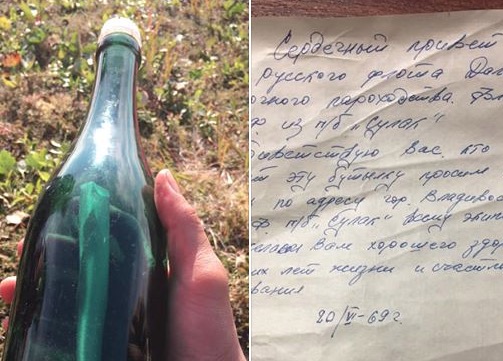 Сердечный привет
русского флота Дал
очного пароходства.
из п/б „Сулак"
ветствую Вас, кто
ет эту бутылку просим
по адресу гор. Владивос
ф п/б „Сулак" всему экип
Вам хорошего здор
их лет жизни и счастл
вания
20/VI-69г.